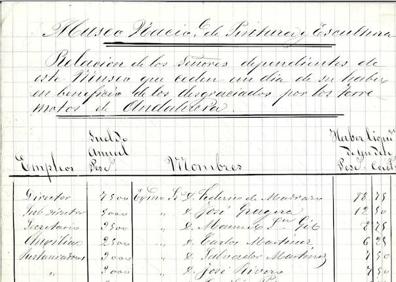 Museo Nacio. de Pintura y Escultura
Relacion de los Señores dependientes de
este Museo que ceden un dia de su haber
en beneficio de los desgraciados por los terre
motos de Andalucia
Empleos Sueldo Anual Pese. Nombres Haber liqu.
Director 7500 Excmo. Sr. D. Federico de Madrazo 18 75
Sub director 5000 " D. José Gragera 12 50
Secretario 2500 " D.
Auxiliar 2500 " D. Carlos Martinez 6 25
Restauradores 3000 " D. Salvador Martinez 7 50
" 3000 " D. José Rivero 7 50